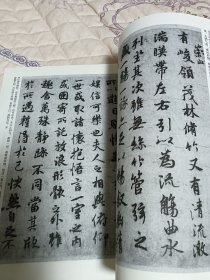 崇山
有峻領茂林脩竹又有清流激
湍暎帶左右引以為流觴曲水
列坐其次雖無絲竹管弦之
盛一觴一詠亦足以暢敘幽情
娛信可樂也夫人之相與俯仰
一世或取諸懷抱悟言一室之內
或因寄所託放浪形骸之外雖
趣舍萬殊靜躁不同當其欣
於所遇暫得於己快然自足不